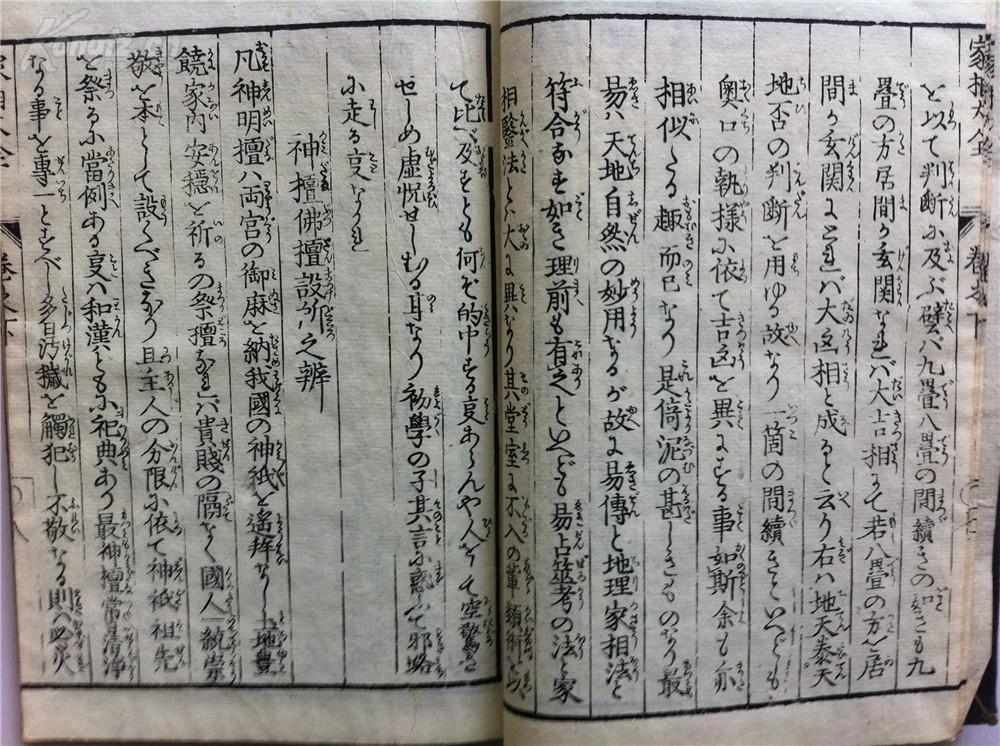 を以て判断に及ぶ譬バ九畳八畳の間續きの如きも九
畳の方居間か玄関なれバ大吉相にて若八畳の方を居
間か玄関にとれバ大凶相と成ると云り右ハ地天泰天
地否の判断を用ゆる故なり一箇の間續きといへども
奥口の執様に依て吉凶を異にする事如斯余も亦
相似たる趣而已なり是倚泥の甚しきものなり最
易ハ天地自然の妙用なるが故に易傳と地理家相法と
符合なす如き理前も有之といへども易占筮考の法と家
相鑒法とハ大に異なり其堂室に不入の輩須術を以
て比べ及すとも何ぞ的中する事あらんや人をして空驚は
せしめ虚悦せしむる耳なり初學の子其言に惑いて邪路
に走る事なかれ
神壇佛壇設所之辨
凡神明壇ハ両宮の御麻を納我國の神祇を遙拜なし土地豊
饒家内安穏を祈るの祭壇なれバ貴賤の隔なく國人一統崇
敬を本として設くべきなり且主人の分限に依て神祇祖先
を祭るに當例ある事ハ和漢ともに祀典あり最神壇常清浄
なる事を專一とすべし多日汚穢を觸犯し不敬なる則ハ必災
家相大全
巻之下